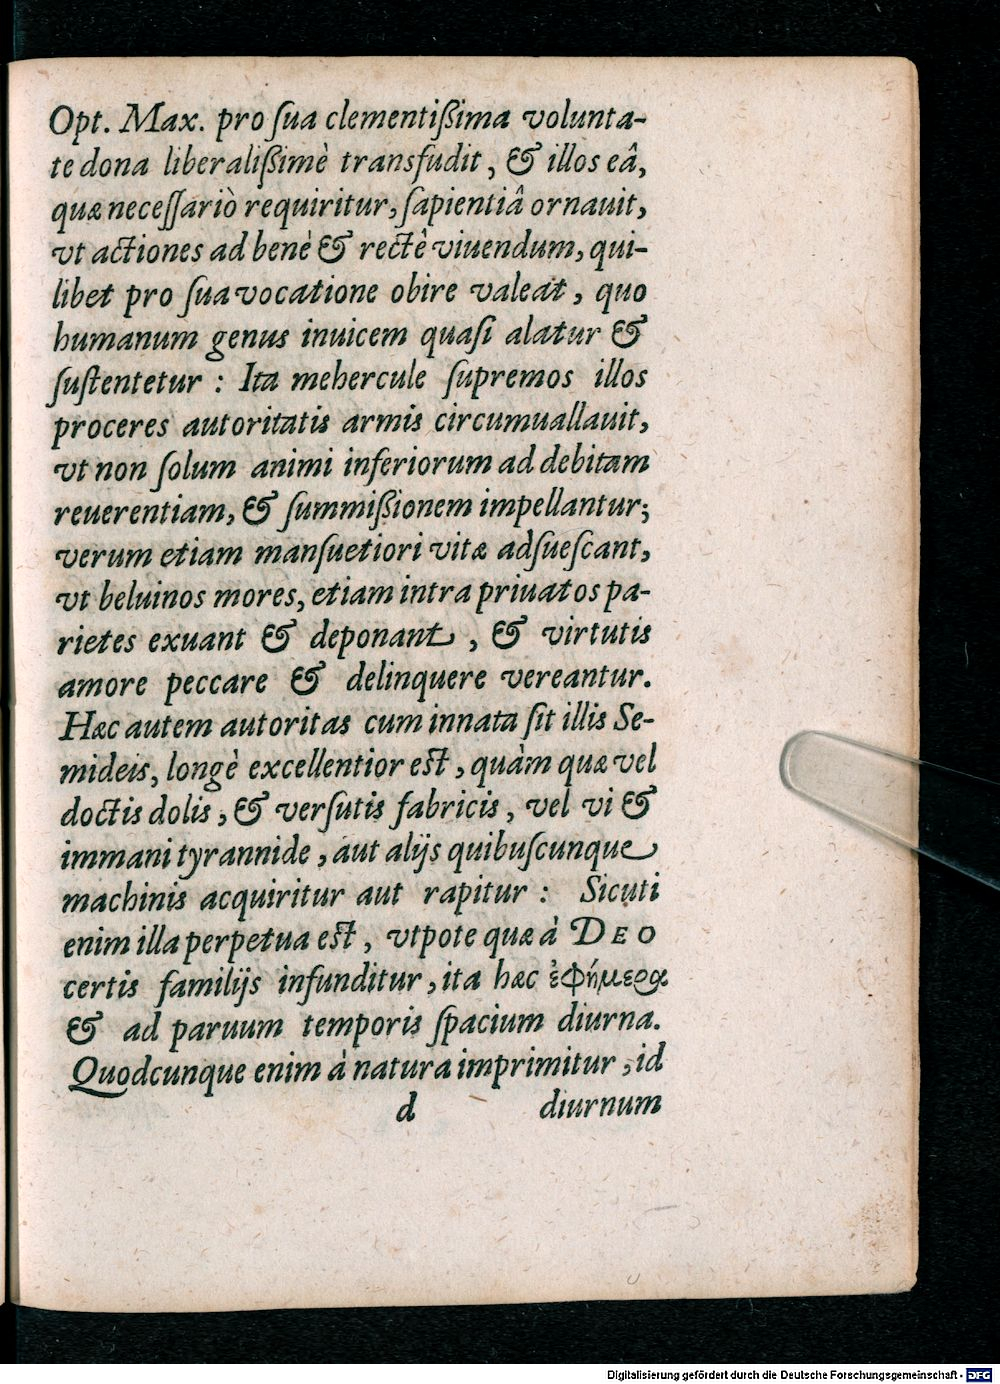 Opt. Max. pro ſua clementißima volunta-
te dona liberalißimè transfudit, & illos eâ,
quæ neceſſariò requiritur, ſapientiâ ornauit,
vt actiones ad benè & rectè viuendum, qui-
libet pro ſua vocatione obire valeat, quo
humanum genus inuicem quaſi alatur &
ſuſtentetur : Ita mehercule ſupremos illos
proceres autoritatis armis circumuallauit,
vt non ſolum animi inferiorum ad debitam
reuerentiam, & ſummißionem impellantur;
verum etiam manſuetiori vitæ adſueſcant,
vt beluinos mores, etiam intra priuatos pa-
rietes exuant & deponant, & virtutis
amore peccare & delinquere vereantur.
Hæc autem autoritas cum innata ſit illis Se-
mideis, longè excellentior eſt, quàm quæ vel
doctis dolis, & verſutis fabricis, vel vi &
immani tyrannide, aut alijs quibuſcunque
machinis acquiritur aut rapitur : Sicuti
enim illa perpetua eſt, vtpote quæ à DEO
certis familijs infunditur, ita hæc ἐφήμερα
& ad paruum temporis ſpacium diurna.
Quodcunque enim à natura imprimitur, id
d diurnum
Digitalisierung gefördert durch die Deutsche Forschungsgemeinschaft - DFG